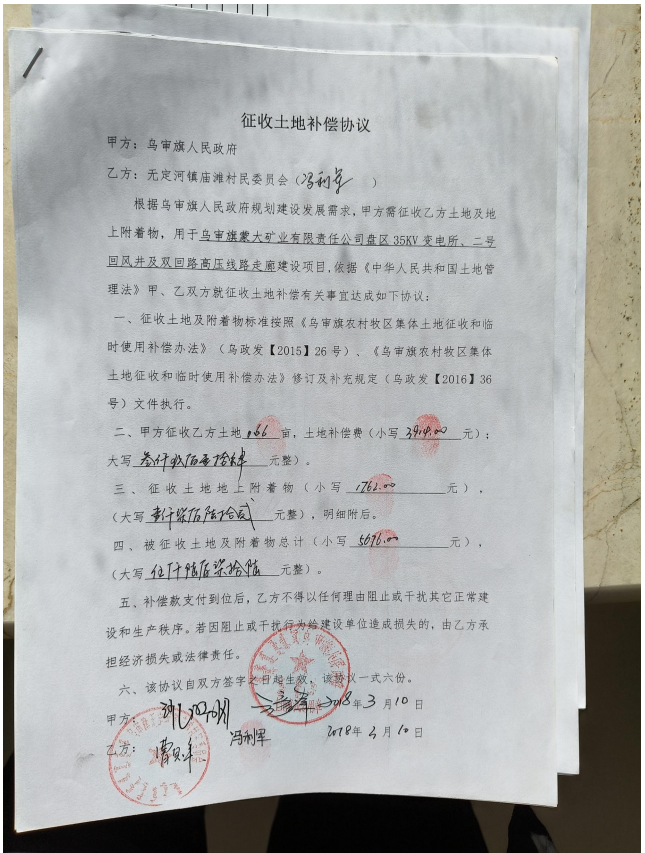 征收土地补偿协议
甲方：乌审旗人民政府
乙方：无定河镇庙滩村民委员会（冯利军 ）
根据乌审旗人民政府规划建设发展需求，甲方需征收乙方土地及地
上附着物，用于乌审旗蒙大矿业有限责任公司盘区35KV变电所、二号
回风井及双回路高压线路走廊建设项目，依据《中华人民共和国土地管
理法》甲、乙双方就征收土地补偿有关事宜达成如下协议：
一、征收土地及附着物标准按照《乌审旗农村牧区集体土地征收和临
时使用补偿办法》（乌政发【2015】26号）、《乌审旗农村牧区集体
土地征收和临时使用补偿办法》修订及补充规定（乌政发【2016】36
号）文件执行。
二、甲方征收乙方土地 0.66 亩，土地补偿费（小写 3914.00 元）；
大写 叁仟玖佰壹拾肆 元整）。
三、征收土地地上附着物（小写 1762.00 元），
（大写 壹仟柒佰陆拾贰 元整），明细附后。
四、被征收土地及附着物总计（小写 5676.00 元），
（大写 伍仟陆佰柒拾陆 元整）。
五、补偿款支付到位后，乙方不得以任何理由阻止或干扰其它正常建
设和生产秩序。若因阻止或干扰行为给建设单位造成损失的，由乙方承
担经济损失或法律责任。
六、该协议自双方签字之日起生效，该协议一式六份。
甲方： 2018年3月10日
乙方： 冯利军 2018年3月10日